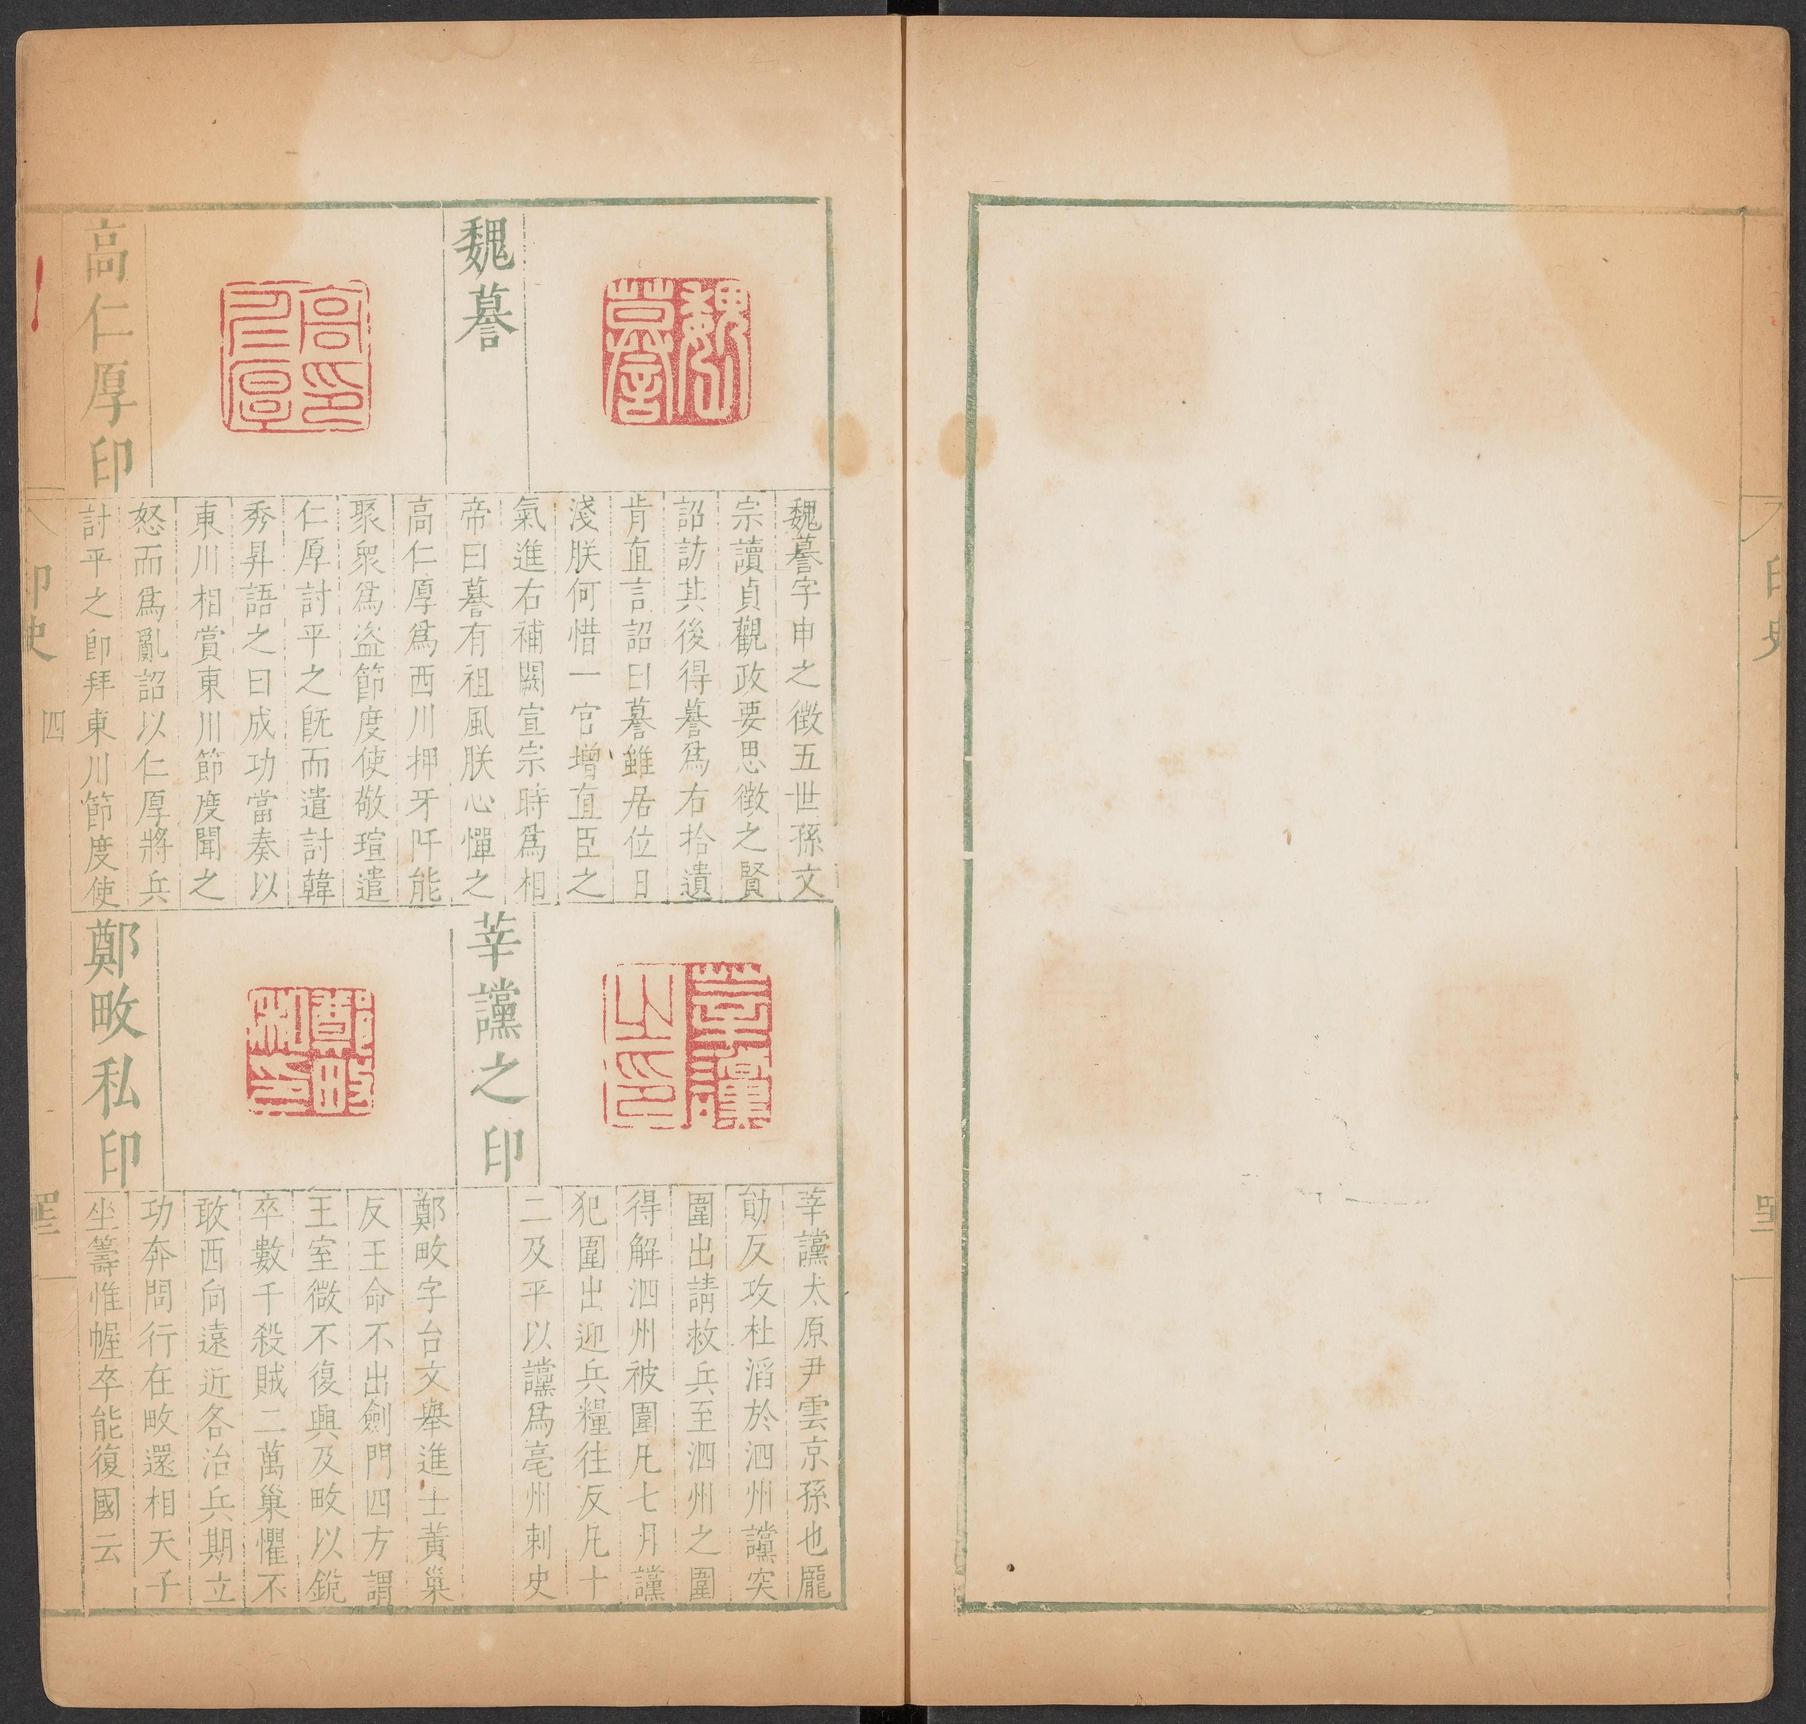 魏謩
魏謩字申之徵五世孫文
宗讀貞觀政要思徵之賢
詔訪其後得謩爲右拾遺
肯直言詔曰謩雖居位日
淺朕何惜一官增直臣之
氣進右補闕宣宗時爲相
帝曰謩有祖風朕心憚之
高仁厚印
高仁厚爲西川押牙阡能
聚衆爲盗節度使敬瑄遣
仁厚討平之旣而遣討韓
秀昇語之曰成功當奏以
東川相賞東川節度聞之
怒而爲亂詔以仁厚將兵
討平之卽拜東川節度使
莘讜之印
莘讜太原尹雲京孫也龎
勛反攻杜滔於泗州讜突
圍出請救兵至泗州之圍
得解泗州被圍凡七月讜
犯圍出迎兵糧往反凡十
二及平以讜爲亳州刺史
鄭畋私印
鄭畋字台文舉進士黄巢
反王命不出劍門四方謂
王室微不復興及畋以銳
卒數千殺賊二萬巢懼不
敢西向遠近各治兵期立
功奔問行在畋還相天子
坐籌惟幄卒能復國云
印史
四